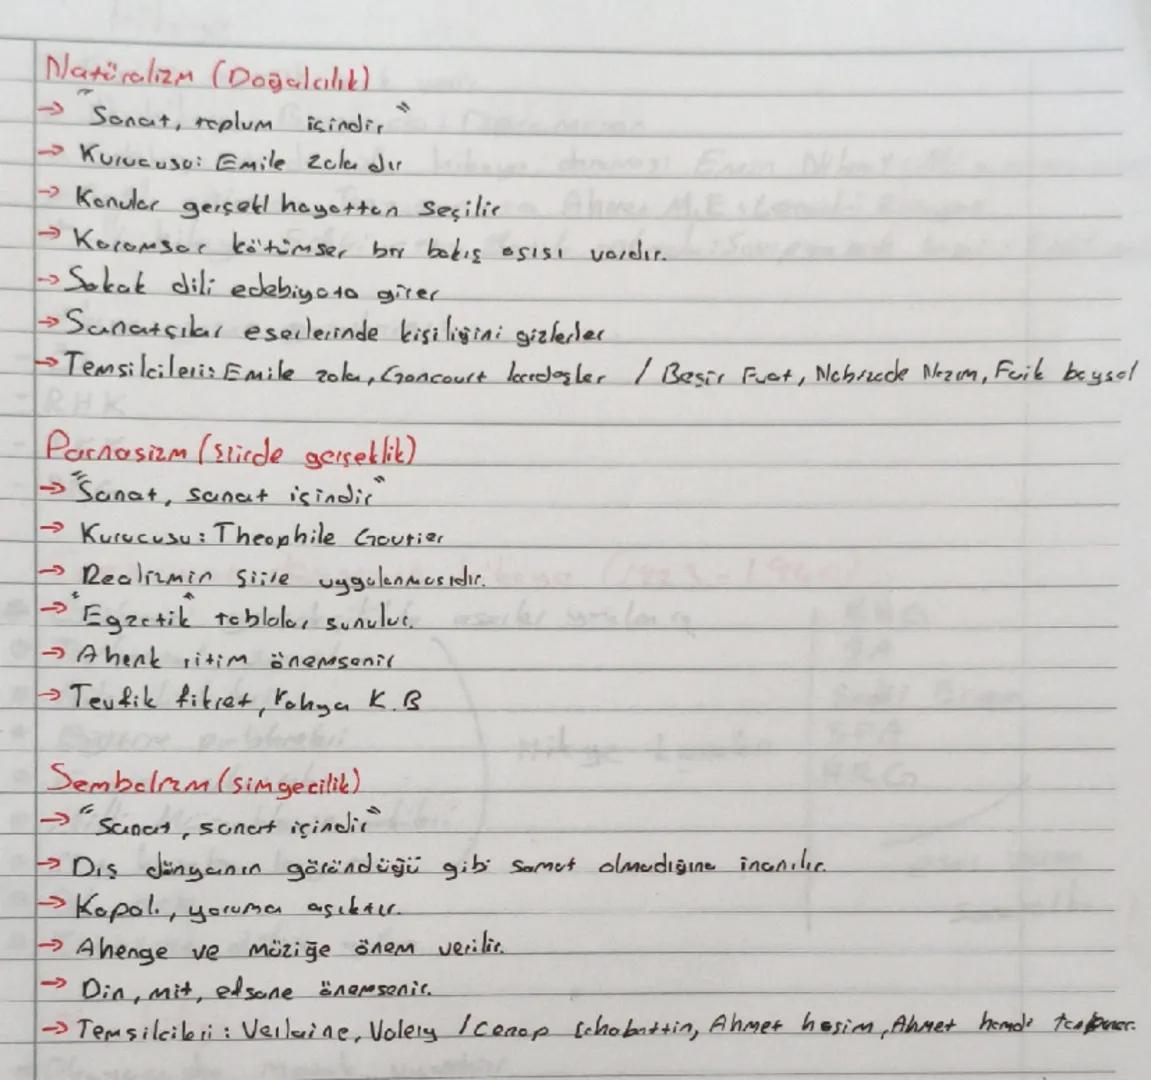 Natüralizm (Doğalcılık)
→ "Sanat, toplum içindir"
→ Kurucusu: Emile Zola dır
→ Konular gerçekl hayattan seçilir
→ Karamsar kötümser bir bakış açısı vardır.
→ Sokak dili edebiyata girer
→ Sanatçılar eserlerinde kişiliğini gizlerler
→ Temsilcileri: Emile zola, Goncourt kardeşler / Beşir Fuat, Nabizade Nazım, Faik baysal
Parnasizm (şiirde gerçeklik)
→ "Sanat, sanat içindir"
→ Kurucusu: Theophile Goutier
→ Realizmin şiire uygulanmasıdır.
→ "Egzotik" tablolar sunulur.
→ Ahenk ritim önemsenir
→ Tevfik fikret, Yahya K.B
Sembolizm (simgecilik)
→ "Sanat, sanat içindir"
→ Dış dünyanın göründüğü gibi somut olmadığına inanılır.
→ Kapalı, yoruma açıktır.
→ Ahenge ve müziğe önem verilir.
→ Din, mit, efsane önemsenir.
→ Temsilcileri: Verlaine, Valery / Cenap Şehabettin, Ahmet haşim, Ahmet hamdi tanpınar.